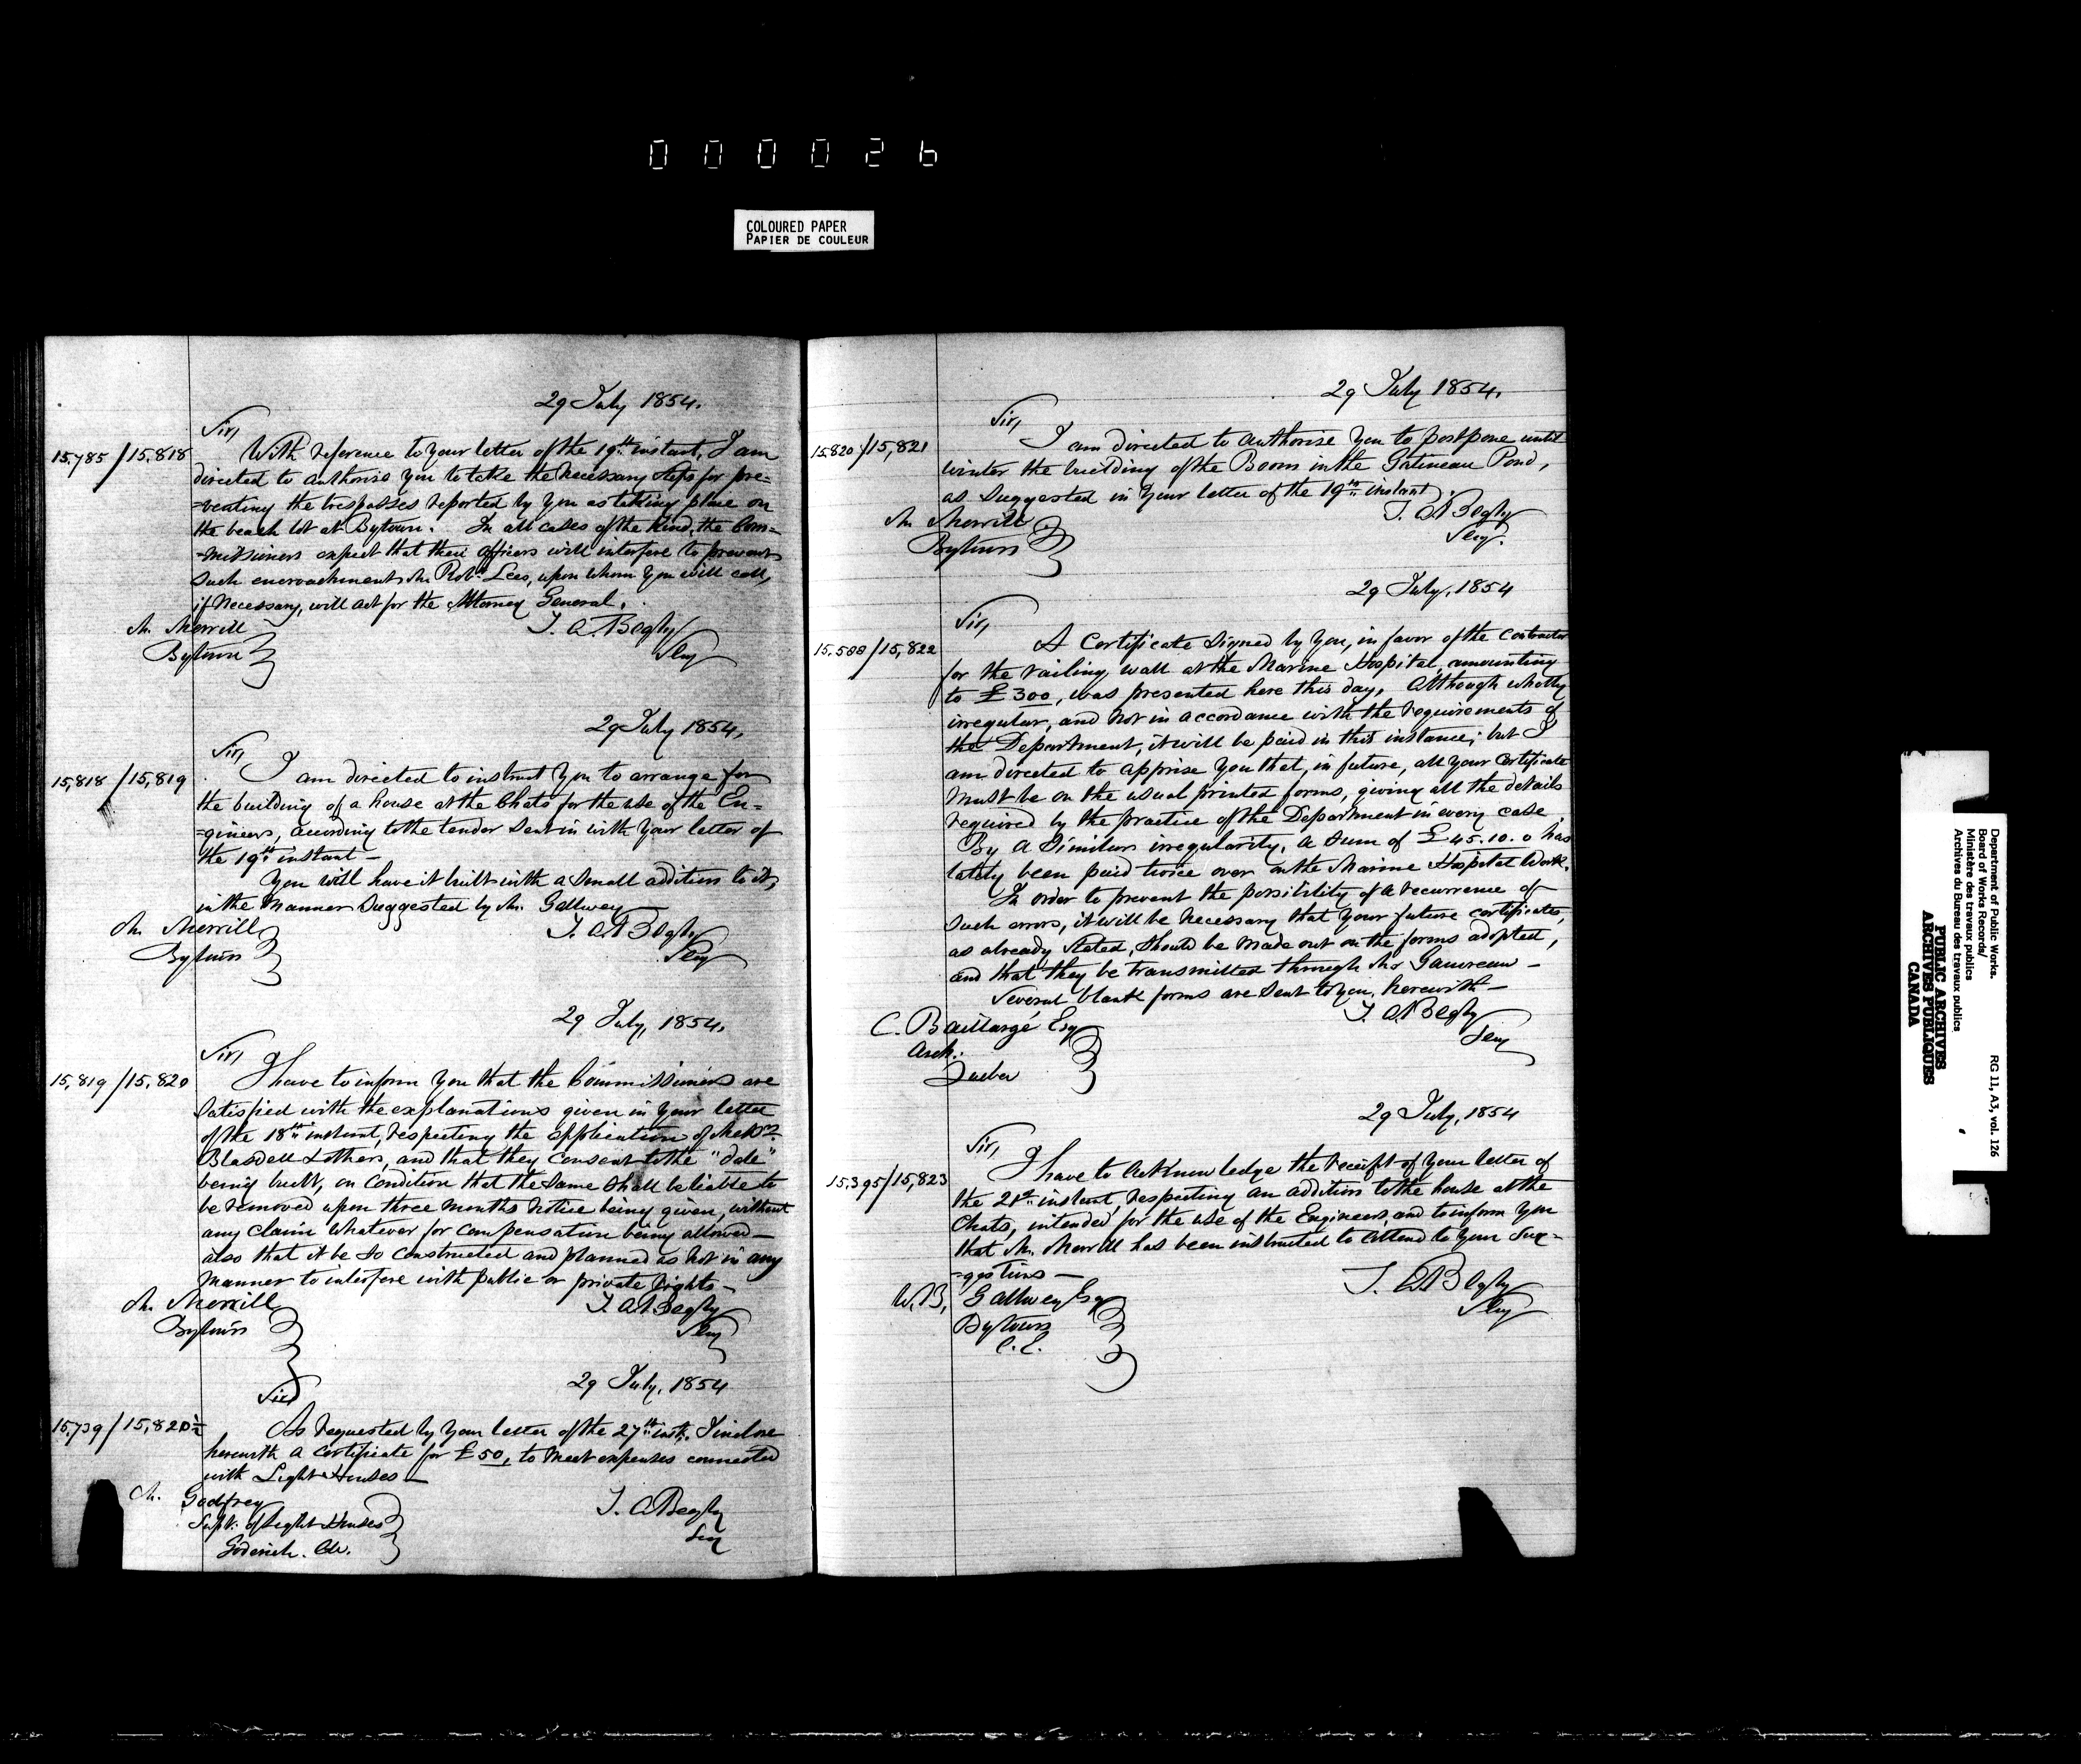 000026
COLOURED PAPER
PAPIER DE COULEUR
29 July 1854.
Sir,
15.785/15.818 With reference to your letter of the 19th instant, I am
directed to authorise you to take the necessary steps for pre=
=venting the trespasses reported by you as taking place on
the beach lot at Bytown. In all cases of the kind, the Com=
=missioners expect that their officers will interfere to prevent
such encroachments. Mr. Robt. Lees, upon whom you will call,
if necessary, will act for the Attorney General.
Mr. Merrill
Bytown
T. A. Begly
Secy
29 July 1854,
Sir,
15,818/15,819 I am directed to instruct you to arrange for
the building of a house at the Chats for the use of the En=
=gineers, according to the tender sent in with your letter of
the 19th instant —
You will have it built with a small addition to it,
in the manner suggested by Mr. Gallwey —
Mr. Merrill
Bytown
T. A. Begly
Secy
29 July, 1854.
Sir,
15,819/15,820 I have to inform you that the Commissioners are
satisfied with the explanations given in your letter
of the 18th instant, respecting the application of Messrs.
Blasdell & others, and that they consent to the "dale"
being built, on condition that the same shall be liable to
be removed upon three months notice being given, without
any claim whatever for compensation being allowed —
also that it be so constructed and planned as not in any
manner to interfere with public or private rights —
Mr. Merrill
Bytown
T. A. Begly
Secy
29 July, 1854
Sir
15.739/15,820½ As requested by your letter of the 27th inst. I inclose
herewith a certificate for £50, to meet expenses connected
with Light Houses —
Mr. Godfrey
Supt. of Light Houses
Goderich. C.W.
T. A. Begly
Secy
29 July 1854.
Sir,
15.820/15,821 I am directed to authorise you to postpone until
winter the building of the Boom in the Gatineau Pond,
as suggested in your letter of the 19th instant.
Mr. Merrill
Bytown
T. A. Begly
Secy.
29 July, 1854
Sir,
15.588/15,822 A Certificate signed by you, in favor of the contractor
for the railing wall at the Marine Hospital, amounting
to £300, was presented here this day. Although wholly
irregular, and not in accordance with the requirements of
the Department, it will be paid in this instance; but I
am directed to apprise you that, in future, all your certificate
must be on the usual printed forms, giving all the details
required by the practice of the Department in every case.
By a similar irregularity, a sum of £45.10.0 has
lately been paid twice over on the Marine Hospital Work.
In order to prevent the possibility of a recurrence of
such errors, it will be necessary that your future certificates,
as already stated, should be made out on the forms adopted,
and that they be transmitted through Mr. Gauvreau —
Several blank forms are sent to you, herewith —
C. Baillargé Esq
Arch.
Quebec
T. A. Begly
Secy
29 July, 1854
Sir,
15.395/15,823 I have to acknowledge the receipt of your letter of
the 21st instant, respecting an addition to the house at the
Chats, intended for the use of the Engineers, and to inform you
that Mr. Merrill has been instructed to attend to your sug=
=gestions —
W. B. Gallwey Esq
Bytown
C. E.
T. A. Begly
Secy
Department of Public Works.
Board of Works Records/
Ministère des travaux publics
Archives du Bureau des travaux publics
RG 11, A3, vol. 126
PUBLIC ARCHIVES
ARCHIVES PUBLIQUES
CANADA